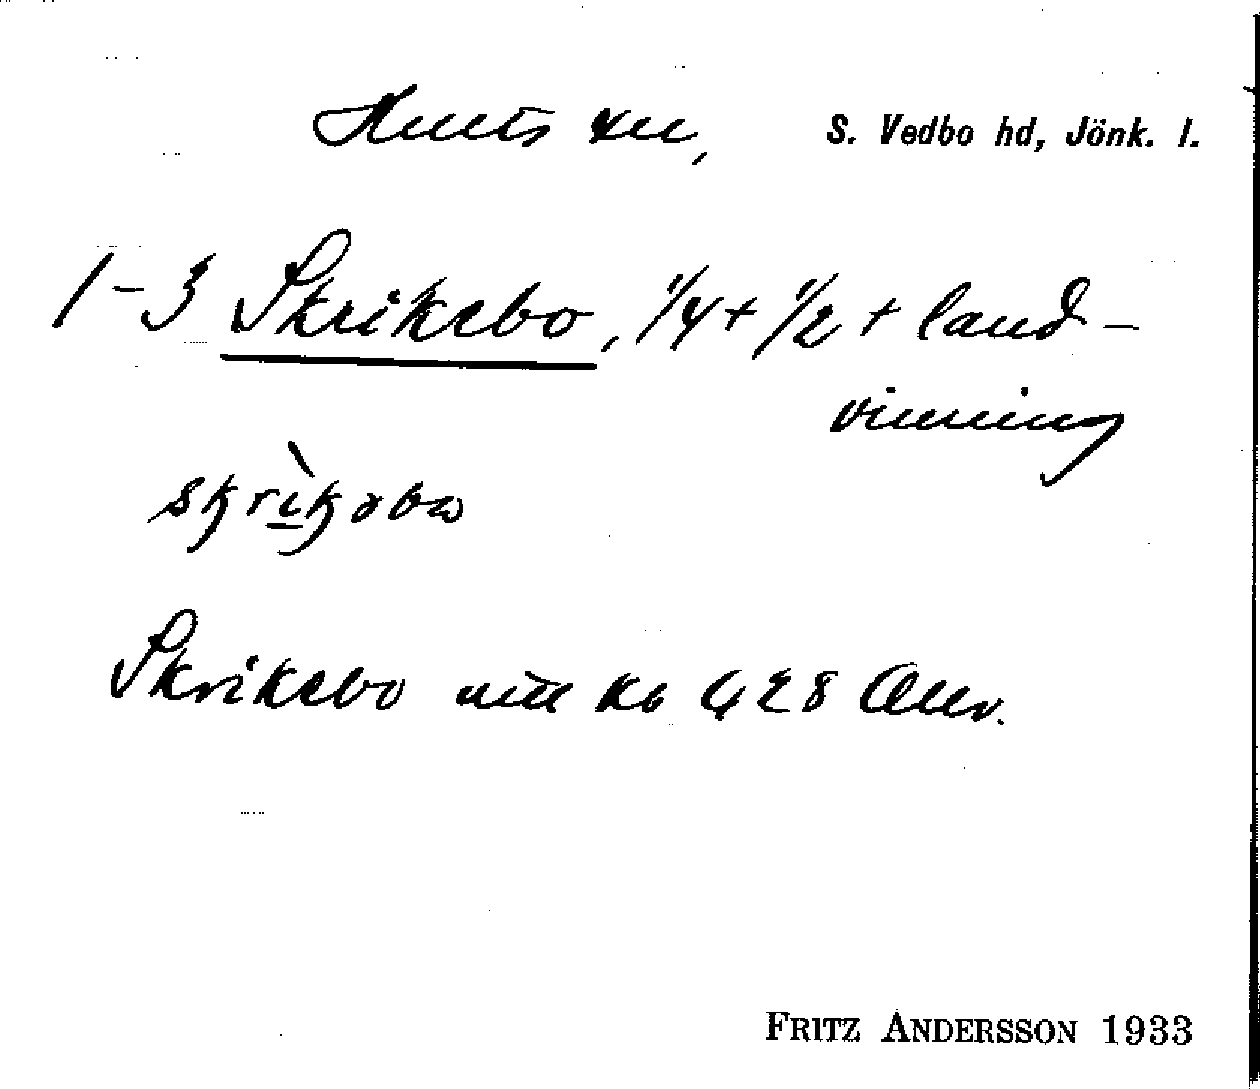 Hults sn, S. Vedbo hd, Jönk. l.
1-3 Skrikebo, 1/4 + 1/2 + land-
vinning
skrìkəbω
Skrikebo
FRITZ ANDERSSON 1933